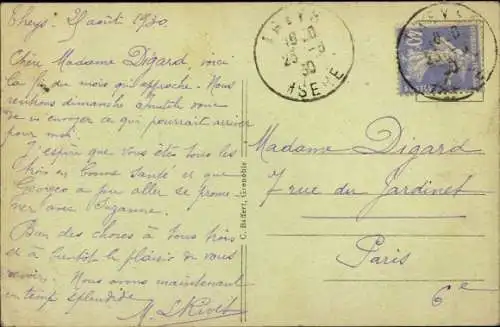 Theys. 28 août 1930
Chère Madame Digard, voici
la fin du mois qui approche. Nous
rentrons dimanche
de m'envoyer ce qui pourrait arriver
pour moi.
J'espère que vous êtes tous les
trois en bonne santé et que
Georges a pu aller se prome-
ner avec Suzanne.
Bien des choses à tous trois
et à bientôt le plaisir de vous
revoir. Nous avons maintenant
un temps splendide.
M.
C. Baffert, Grenoble
THEYS
ISERE
Madame Digard
7 rue du Jardinet
Paris
6e